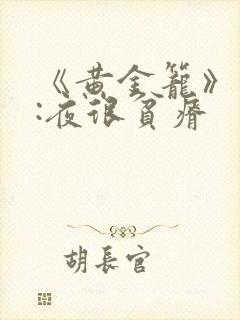 《黄金籠》
:夜很貧瘠
胡長官